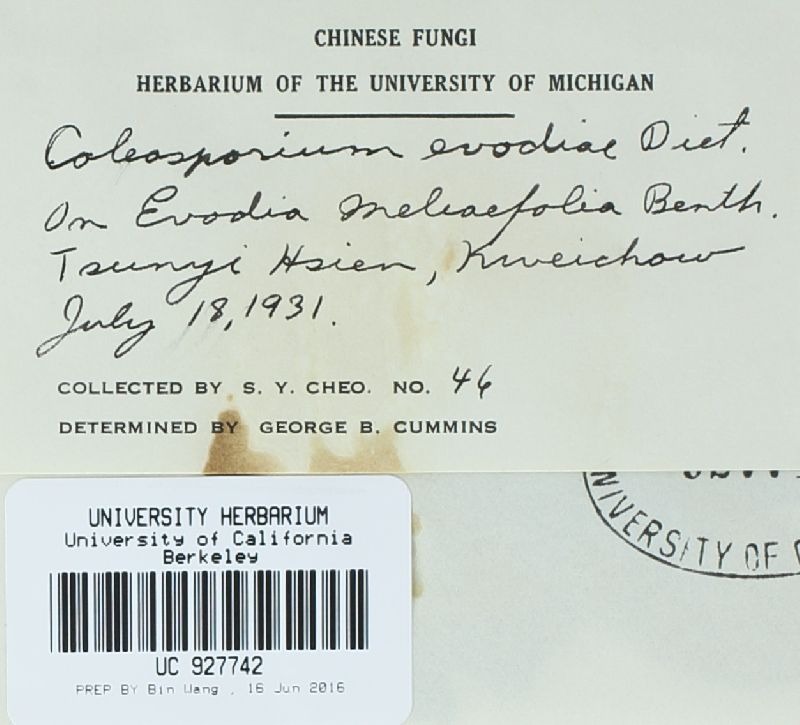 CHINESE FUNGI
HERBARIUM OF THE UNIVERSITY OF MICHIGAN
Coleosporium evodiae Diet.
On Evodia meliaefolia Benth.
Tsunyi Hsien, Kweichow
July 18, 1931.
COLLECTED BY S. Y. CHEO. NO. 46
DETERMINED BY GEORGE B. CUMMINS
UNIVERSITY OF
UNIVERSITY HERBARIUM
University of California
Berkeley
UC 927742
PREP BY Bin Wang , 16 Jun 2016